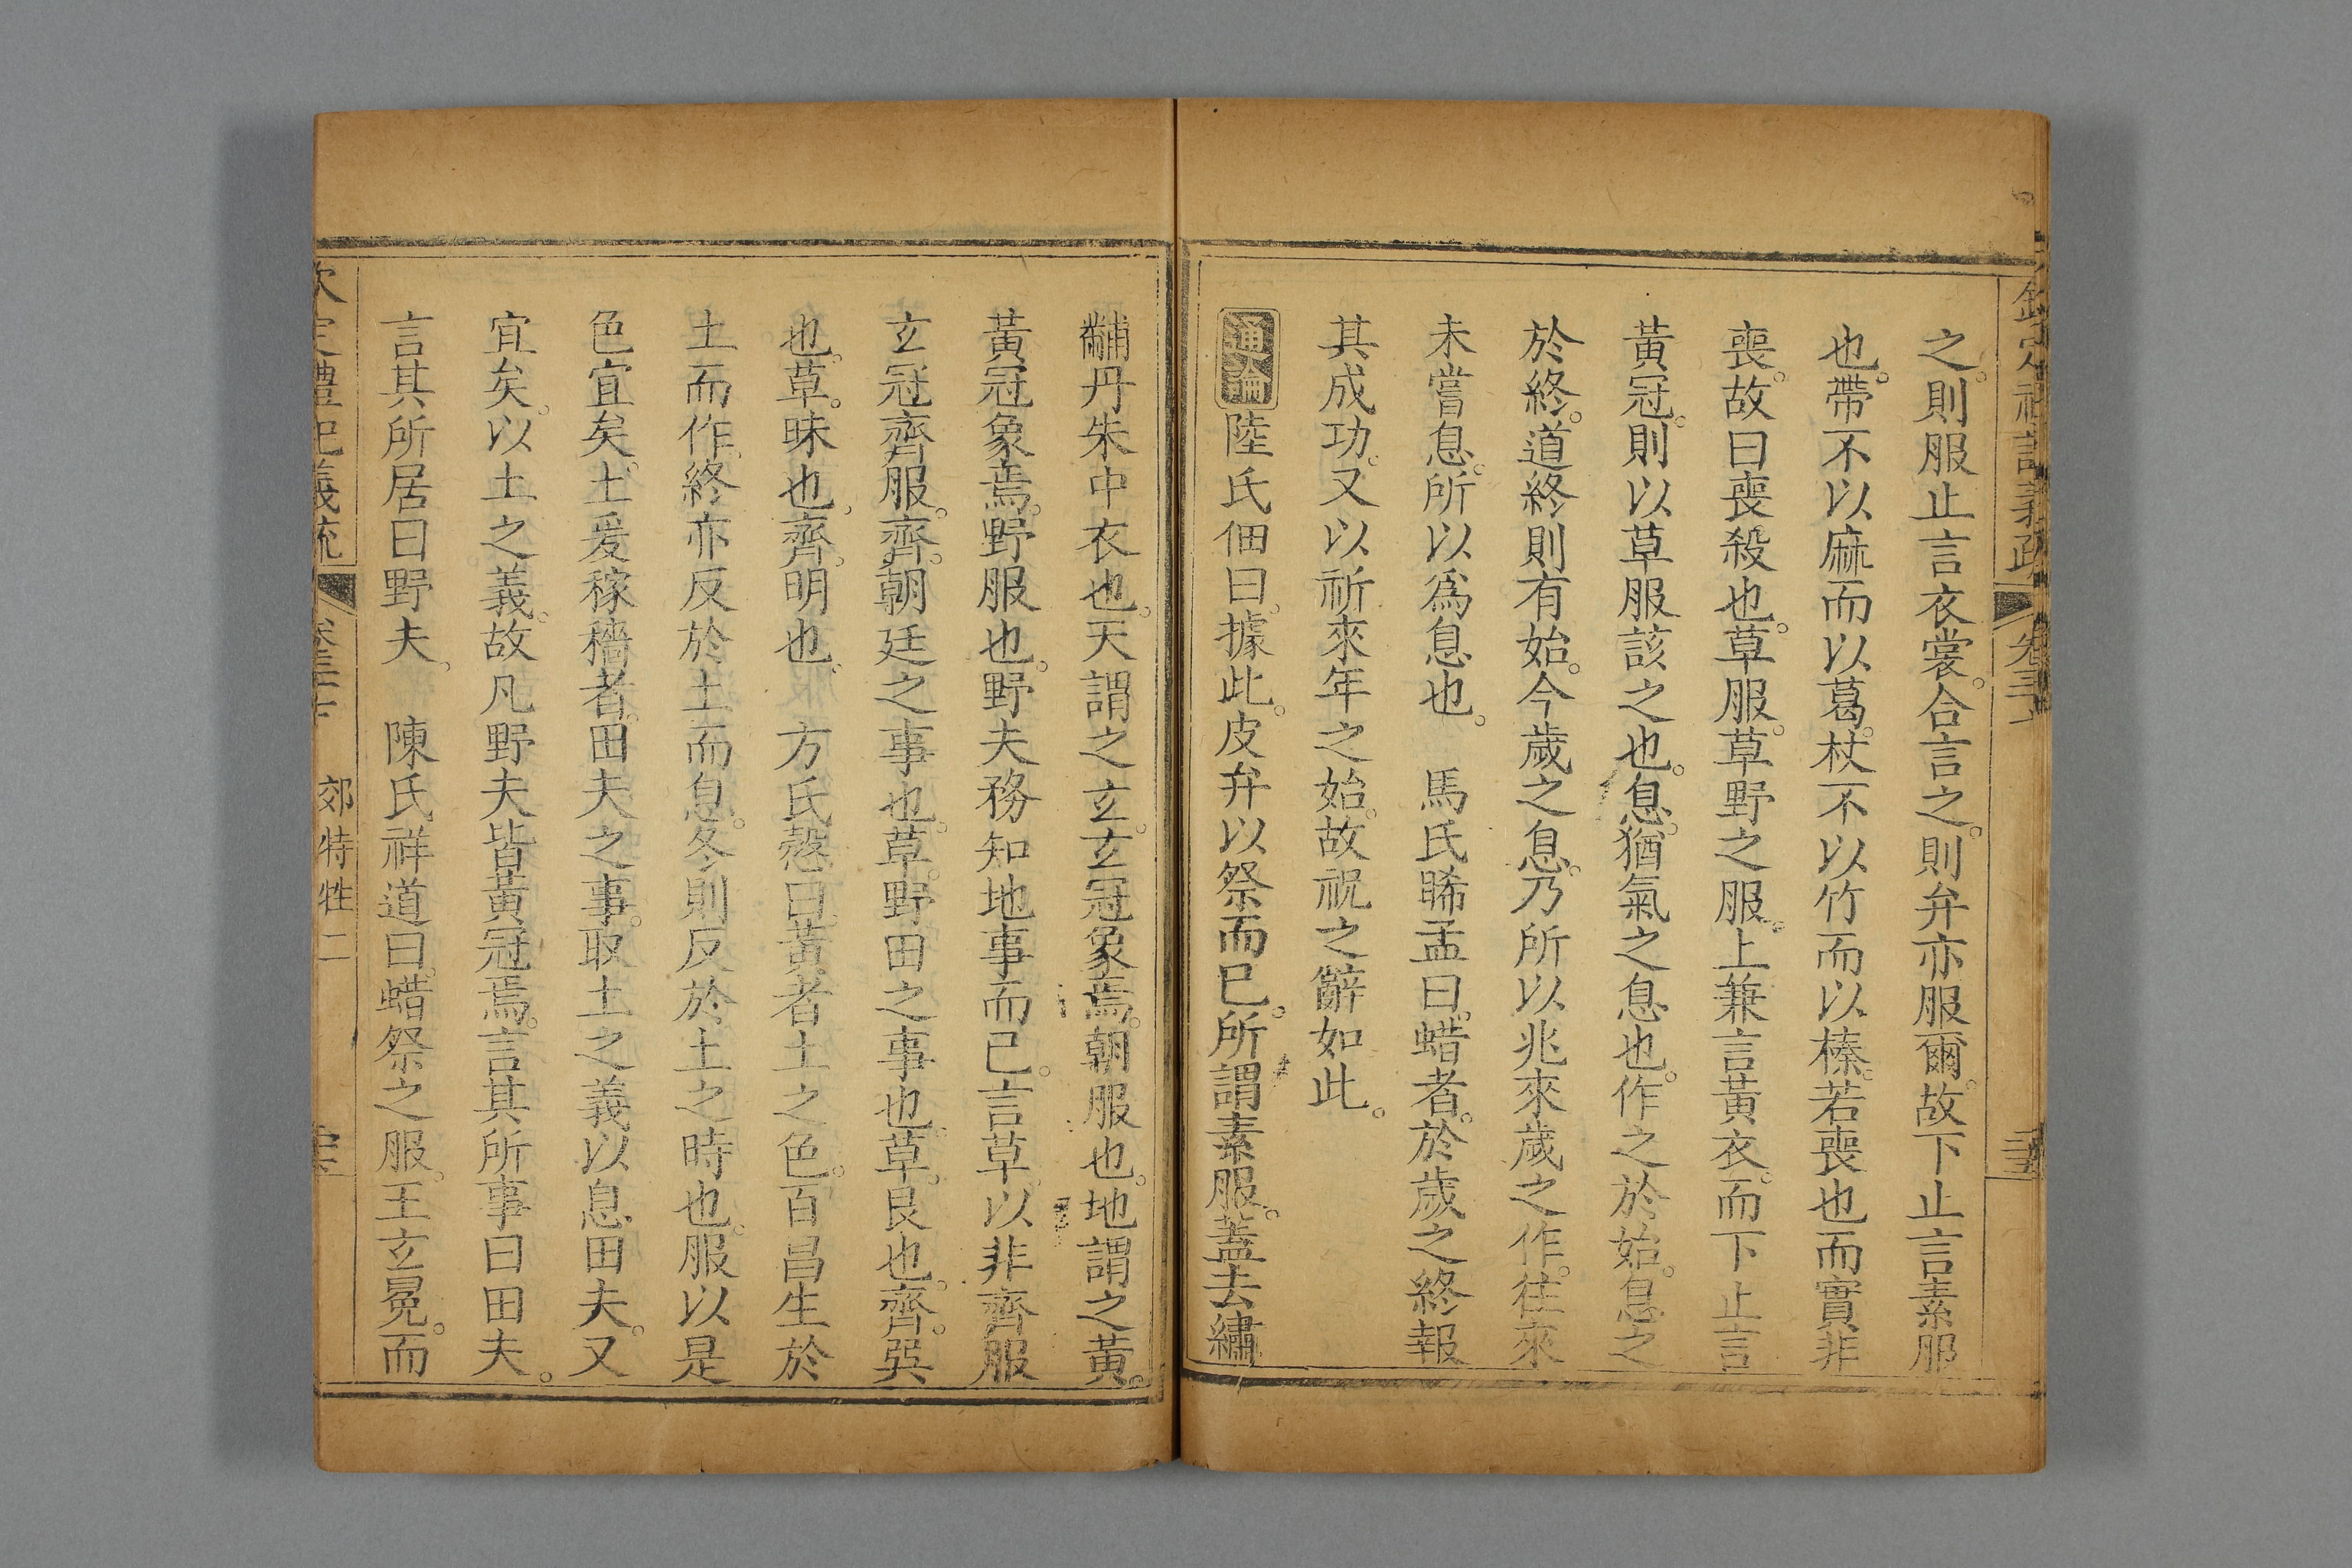 之則服止言衣裳。合言之。則弁亦服爾。故下止言素服
也。帶不以麻而以葛。杖不以竹而以榛。若喪也而實非
喪。故曰喪殺也。草服。草野之服。上兼言黃衣。而下止言
黃冠。則以草服該之也。息。猶氣之息也。作之於始。息之
於終。道終則有始。今歲之息。乃所以兆來歲之作。往來
未嘗息。所以爲息也。 馬氏睎孟曰。蜡者。於歲之終報
其成功。又以祈來年之始。故祝之辭如此。
通論 陸氏佃曰。據此。皮弁以祭而已。所謂素服。蓋去繡
黼丹朱中衣也。天謂之玄。玄冠象焉。朝服也。地謂之黃。
黃冠象焉。野服也。野夫務知地事而已。言草以非齊服
玄冠齊服。齊。朝廷之事也。草。野田之事也。草。艮也。齊。巽
也。草。昧也。齊。明也。 方氏慤曰。黃者土之色。百昌生於
土而作。終亦反於土而息。冬則反於土之時也。服以是
色宜矣。土爰稼穡者。田夫之事。取土之義以息田夫。又
宜矣。以土之義。故凡野夫皆黃冠焉。言其所事曰田夫。
言其所居曰野夫。 陳氏祥道曰。蜡祭之服。王玄冕。而
欽定禮記義疏 郊特牲二